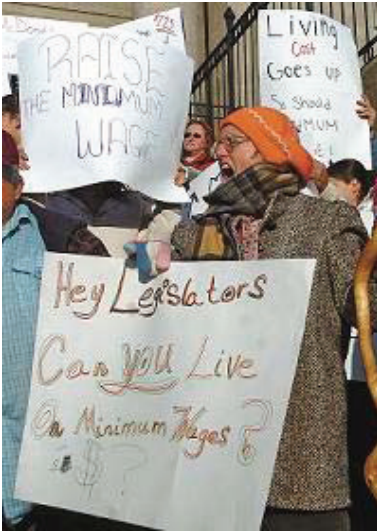 RAISE
THE MINIMUM
WAGE
Living
Cost
Goes up
So Should
Hey Legislators
Can YOU Live
On Minimum Wages?
$ ?